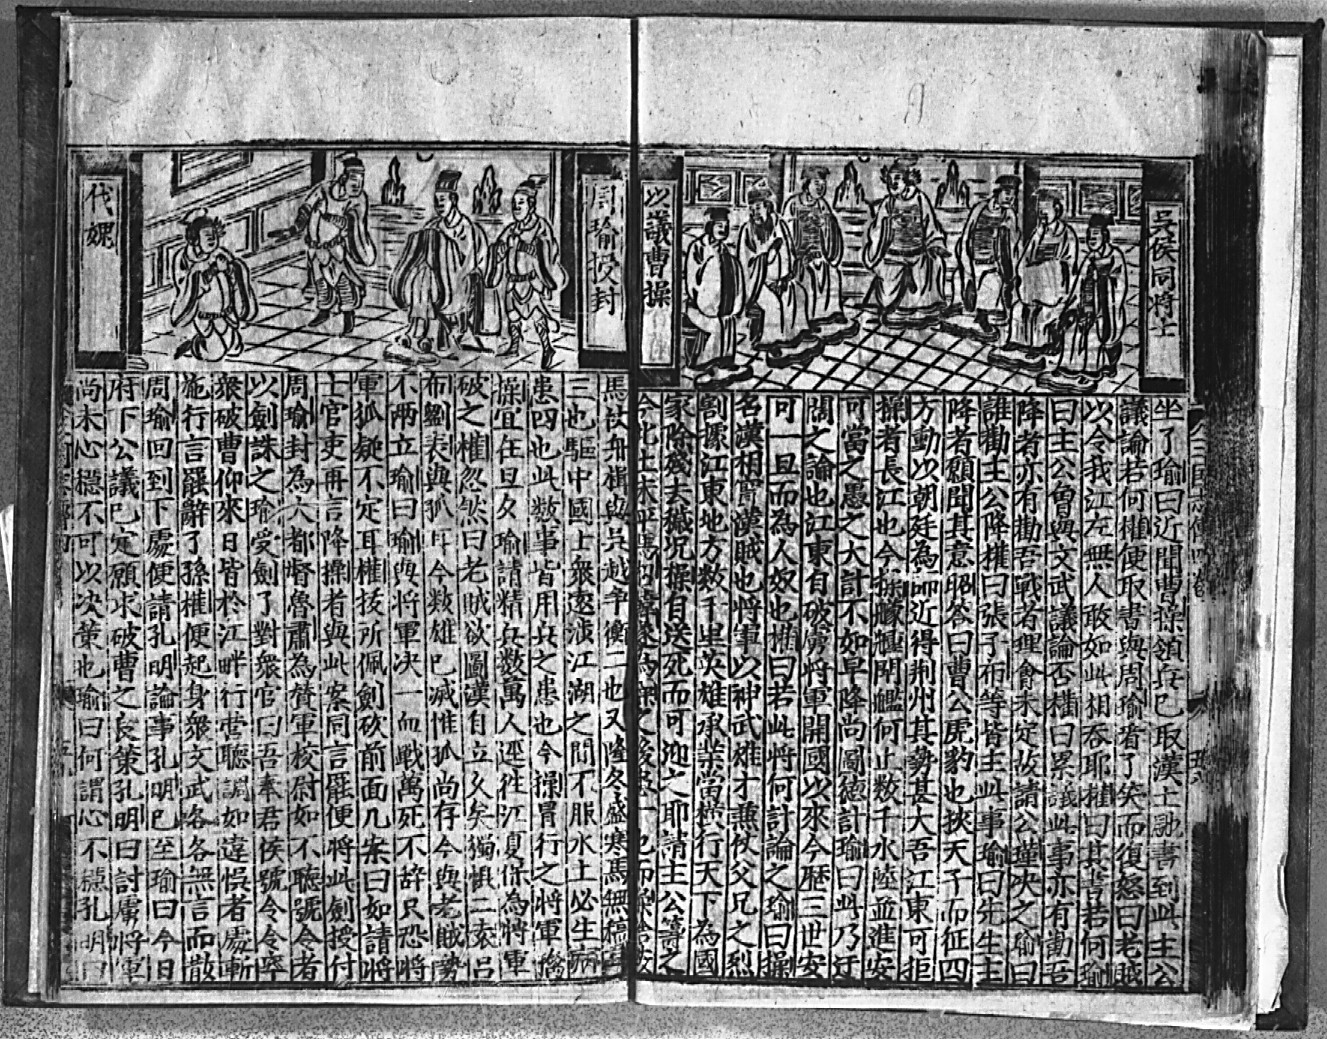 吳侯同將士
以議曹操
坐了瑜曰近聞曹操領兵已取漢土馳書到此主公
議論若何權便取書與周瑜看了笑而復怒曰老賊
以令我江左無人敢如此相吞耶權曰其書若何瑜
曰主公曾與文武議論否權曰累議此事亦有勸吾
降者亦有勸吾戰者理會未定故請公瑾決之瑜曰
誰勸主公降權曰張子布等皆主此事瑜曰先生主
降者願聞其意昭答曰曹公虎豹也挾天子而征四
方動以朝廷為師近得荊州其勢甚大吾江東可拒
操者長江也今操艨艟鬬艦何止数千水陸並進安
可當之愚之大計不如早降尚圖後計瑜曰此乃迂
闊之論也江東自破虜將軍開國以來今歷三世安
可一旦而為人奴也權曰若此將何計論之瑜曰操
名漢相實漢賊也將軍以神武雄才兼仗父兄之烈
割據江東地方数千里英雄承業當橫行天下為國
家除殘去穢况操自送死而可迎之耶請主公籌之
今北土未平馬超韓遂為操之後患一也而操捨鞍
馬仗舟楫與吳越爭衡二也又隆冬盛寒馬無稿草
三也驅中國士衆遠涉江湖之間不服水土必生病
患四也此数事皆用兵之患也今操冒行之將軍擒
操宜在旦夕瑜請精兵数萬人逕往江夏保為將軍
破之權忽然曰老賊欲圖漢自立久矣獨惧二袁呂
布劉表與孤耳今数雄已滅惟孤尚存今與老賊勢
不兩立瑜曰瑜與將軍决一血戰萬死不辞只恐將
軍狐疑不定耳權拔所佩劍砍前面几案曰如請將
士官吏再言降操者與此案同言罷便將此劍授付
周瑜封為大都督魯肅為贊軍校尉如不聽號令者
以劍誅之瑜受劍了對衆官曰吾奉君侯號令令率
衆破曹仰來日皆於江畔行營聽調如違悞者處斬
施行言罷辭了孫權便起身衆文武各各無言而散
周瑜回到下處便請孔明論事孔明已至瑜曰今日
府下公議已定願求破曹之良策孔明曰討虜將軍
尚未心穩不可以决策也瑜曰何謂心不穩孔明曰
周瑜授封
代媿